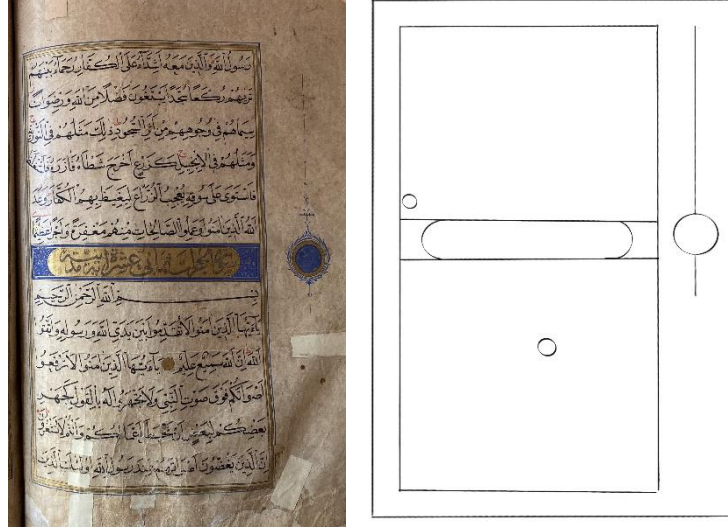 رَسُولُ اللهِ وَالَّذِينَ مَعَهُ أَشِدَّاءُ عَلَى الْكُفَّارِ رُحَمَاءُ بَيْنَهُمْ
تَرَيهُمْ رُكَّعًا سُجَّدًا يَبْتَغُونَ فَضْلًا مِنَ اللهِ وَرِضْوَانًا
سِيمَاهُمْ فِي وُجُوهِهِمْ مِنْ أَثَرِ السُّجُودِ ذٰلِكَ مَثَلُهُمْ فِي التَّوْرٰيةِ
وَمَثَلُهُمْ فِي الْإِنْجِيلِ كَزَرْعٍ أَخْرَجَ شَطْأَهُ فَآزَرَهُ فَاسْتَغْلَظَ
فَاسْتَوَى عَلَى سُوقِهِ يُعْجِبُ الزُّرَّاعَ لِيَغِيظَ بِهِمُ الْكُفَّارَ وَعَدَ
اللهُ الَّذِينَ آمَنُوا وَعَمِلُوا الصَّالِحَاتِ مِنْهُمْ مَغْفِرَةً وَأَجْرًا عَظِيمًا
سورة الحجرات ثماني عشرة آية مدنية
بِسْمِ اللهِ الرَّحْمٰنِ الرَّحِيمِ
يَا أَيُّهَا الَّذِينَ آمَنُوا لَا تُقَدِّمُوا بَيْنَ يَدَيِ اللهِ وَرَسُولِهِ وَاتَّقُوا
اللهَ إِنَّ اللهَ سَمِيعٌ عَلِيمٌ يَا أَيُّهَا الَّذِينَ آمَنُوا لَا تَرْفَعُوا
أَصْوَاتَكُمْ فَوْقَ صَوْتِ النَّبِيِّ وَلَا تَجْهَرُوا لَهُ بِالْقَوْلِ كَجَهْرِ
بَعْضِكُمْ لِبَعْضٍ أَنْ تَحْبَطَ أَعْمَالُكُمْ وَأَنْتُمْ لَا تَشْعُرُونَ
إِنَّ الَّذِينَ يَغُضُّونَ أَصْوَاتَهُمْ عِنْدَ رَسُولِ اللهِ أُولٰئِكَ الَّذِينَ